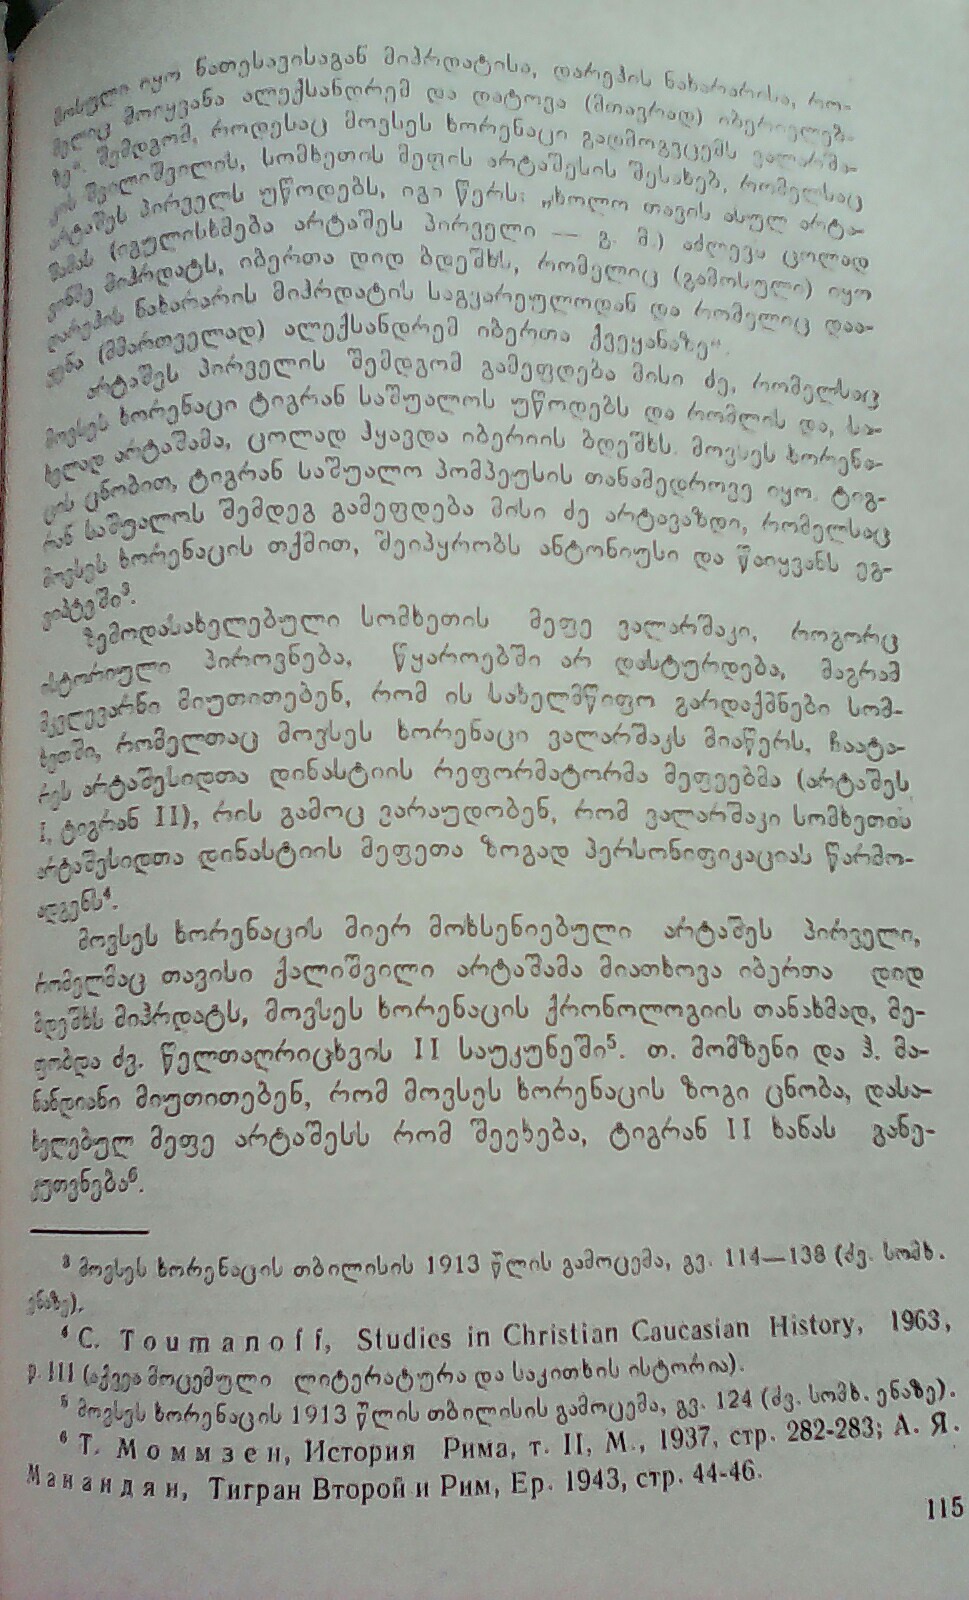 მოსული იყო ნათესავისაგან მიჰრდატისა, დარეჰის ნახარარისა, რო-
მელიც მოიყვანა ალექსანდრემ და დატოვა (მთავრად) იბერიელებ-
ზე“. შემდგომ, როდესაც მოვსეს ხორენაცი გადმოგვცემს ვალარშა-
კის შვილიშვილის, სომხეთის მეფის არტაშესის შესახებ, რომელსაც
არტაშეს პირველს უწოდებს, იგი წერს: „ხოლო თავის ასულ არტა-
შამას (იგულისხმება არტაშეს პირველი — გ. მ.) აძლევს ცოლად
ვინმე მიჰრდატს, იბერთა დიდ ბდეშხს, რომელიც (გამოსული) იყო
დარეჰის ნახარარის მიჰრდატის საგვარეულოდან და რომელიც დაა-
ყენა (მმართველად) ალექსანდრემ იბერთა ქვეყანაზე“.
არტაშეს პირველის შემდგომ გამეფდება მისი ძე, რომელსაც
მოვსეს ხორენაცი ტიგრან საშუალოს უწოდებს და რომლის და, სა-
ხელად არტაშამა, ცოლად ჰყავდა იბერიის ბდეშხს. მოვსეს ხორენა-
ცის ცნობით, ტიგრან საშუალო პომპეუსის თანამედროვე იყო. ტიგ-
რან საშუალოს შემდეგ გამეფდება მისი ძე არტავაზდი, რომელსაც
მოვსეს ხორენაცის თქმით, შეიპყრობს ანტონიუსი და წაიყვანს ეგ-
ვიპტეში³.
ზემოდასახელებული სომხეთის მეფე ვალარშაკი, როგორც
ისტორიული პიროვნება, წყაროებში არ დასტურდება, მაგრამ
მკვლევარნი მიუთითებენ, რომ ის სახელმწიფო გარდაქმნები სომ-
ხეთში, რომელთაც მოვსეს ხორენაცი ვალარშაკს მიაწერს, ჩაატა-
რეს არტაშესიდთა დინასტიის რეფორმატორმა მეფეებმა (არტაშეს
I, ტიგრან II), რის გამოც ვარაუდობენ, რომ ვალარშაკი სომხეთის
არტაშესიდთა დინასტიის მეფეთა ზოგად პერსონიფიკაციას წარმო-
ადგენს⁴.
მოვსეს ხორენაცის მიერ მოხსენიებული არტაშეს პირველი,
რომელმაც თავისი ქალიშვილი არტაშამა მიათხოვა იბერთა დიდ
ბდეშხს მიჰრდატს, მოვსეს ხორენაცის ქრონოლოგიის თანახმად, მე-
ფობდა ძვ. წელთაღრიცხვის II საუკუნეში⁵. თ. მომზენი და ჰ. მა-
ნანდიანი მიუთითებენ, რომ მოვსეს ხორენაცის ზოგი ცნობა, დასა-
ხელებულ მეფე არტაშესს რომ შეეხება, ტიგრან II ხანას განე-
კუთვნება⁶.
³ მოვსეს ხორენაცის თბილისის 1913 წლის გამოცემა, გვ. 114—138 (ძვ. სომხ.
ენაზე).
⁴ C. Toumanoff, Studies in Christian Caucasian History, 1963,
p. III (აქვეა მოცემული ლიტერატურა და საკითხის ისტორია).
⁵ მოვსეს ხორენაცის 1913 წლის თბილისის გამოცემა, გვ. 124 (ძვ. სომხ. ენაზე).
⁶ Т. Моммзен, История Рима, т. II, М., 1937, стр. 282-283; А. Я.
Манандян, Тигран Второй и Рим, Ер. 1943, стр. 44-46.
115